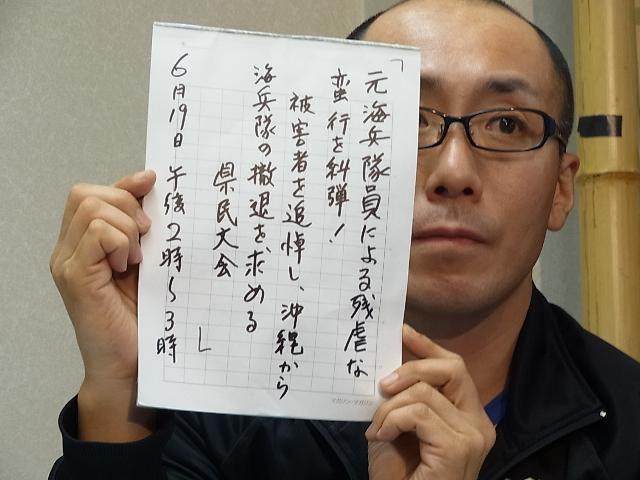 「元海兵隊員による残虐な
蛮行を糾弾！
被害者を追悼し、沖縄から
海兵隊の撤退を求める
県民大会」
6月19日 午後2時～3時
マガジン・マガジン